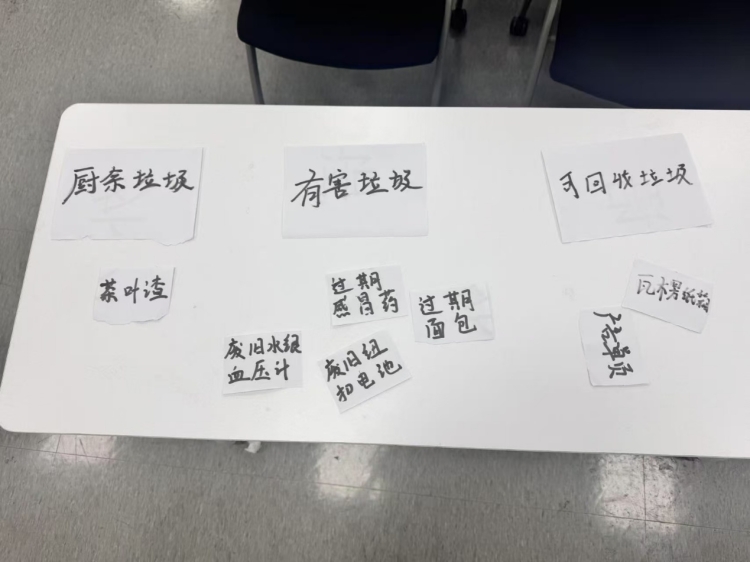 厨余垃圾
有害垃圾
可回收垃圾
茶叶渣
过期
感冒药
过期
面包
瓦楞纸箱
废旧水银
血压计
废旧纽
扣电池
广告单页